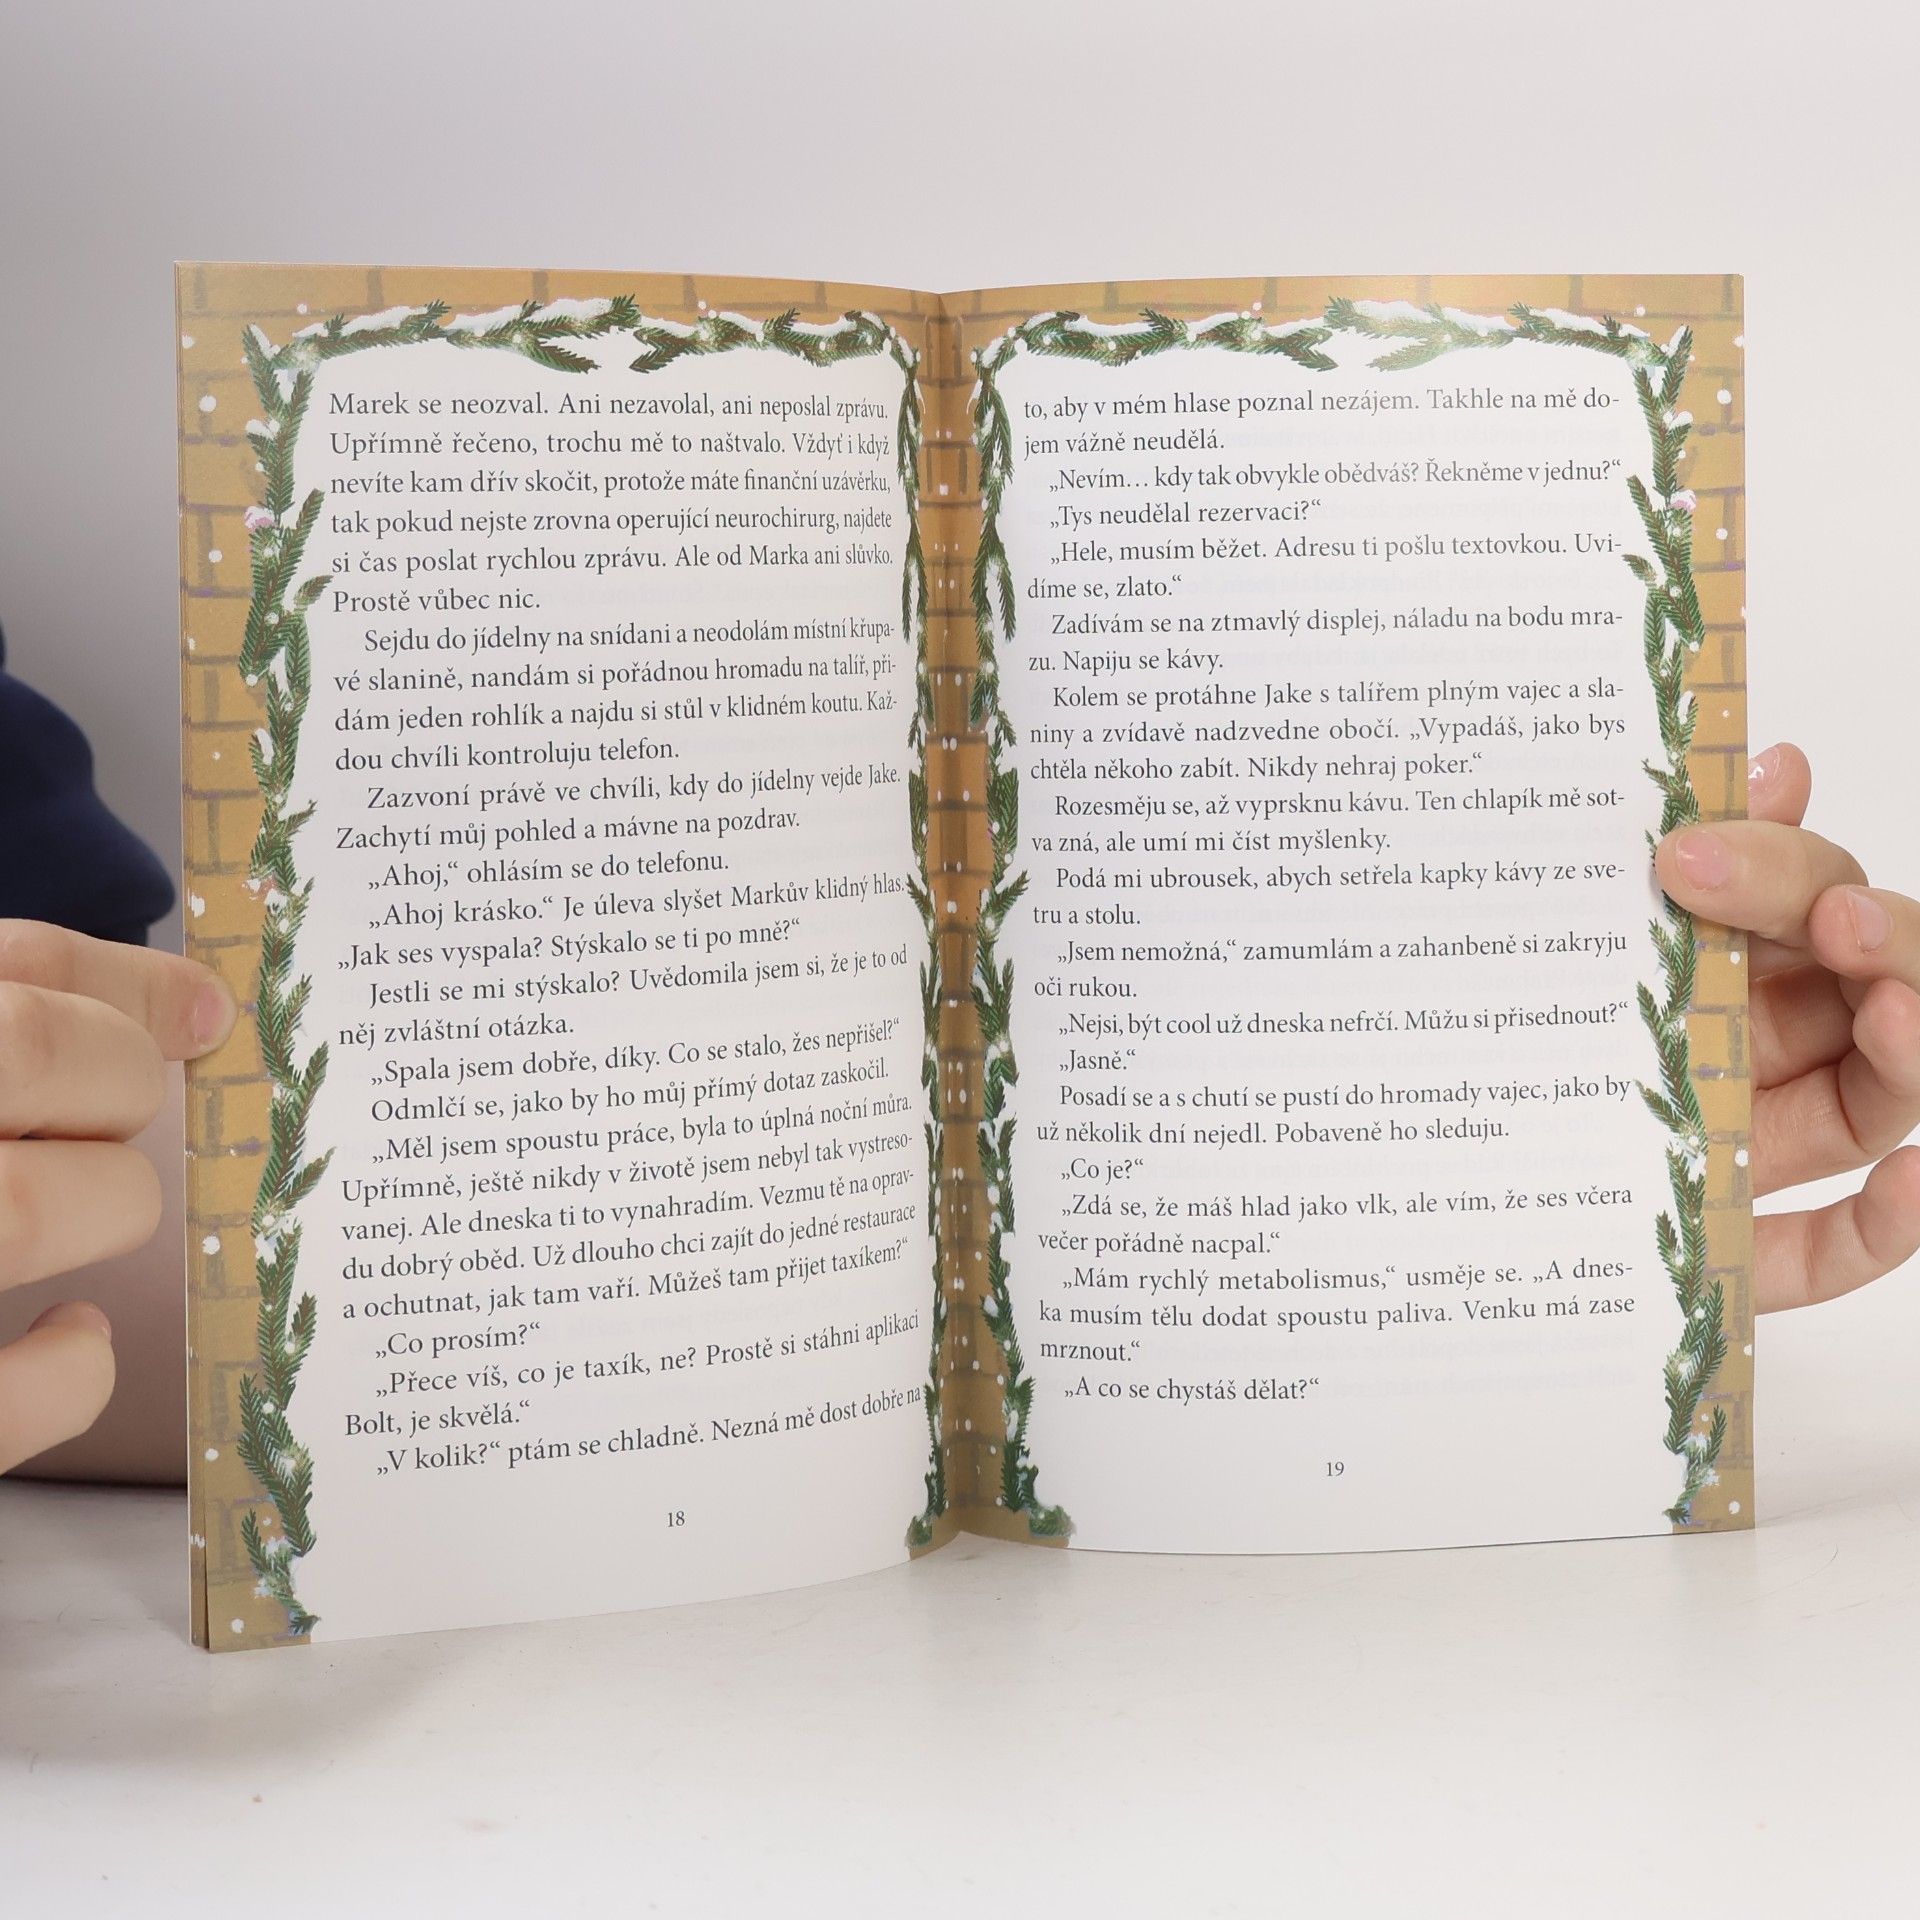 Marek se neozval. Ani nezavolal, ani neposlal zprávu.
Upřímně řečeno, trochu mě to naštvalo. Vždyť i když
nevíte kam dřív skočit, protože máte finanční uzávěrku,
tak pokud nejste zrovna operující neurochirurg, najdete
si čas poslat rychlou zprávu. Ale od Marka ani slůvko.
Prostě vůbec nic.
Sejdu do jídelny na snídani a neodolám místní křupa-
vé slanině, nandám si pořádnou hromadu na talíř, při-
dám jeden rohlík a najdu si stůl v klidném koutu. Kaž-
dou chvíli kontroluju telefon.
Zazvoní právě ve chvíli, kdy do jídelny vejde Jake.
Zachytí můj pohled a mávne na pozdrav.
„Ahoj,“ ohlásím se do telefonu.
„Ahoj krásko.“ Je úleva slyšet Markův klidný hlas.
„Jak ses vyspala? Stýskalo se ti po mně?“
Jestli se mi stýskalo? Uvědomila jsem si, že je to od
něj zvláštní otázka.
„Spala jsem dobře, díky. Co se stalo, žes nepřišel?“
Odmlčí se, jako by ho můj přímý dotaz zaskočil.
„Měl jsem spoustu práce, byla to úplná noční můra.
Upřímně, ještě nikdy v životě jsem nebyl tak vystreso-
vanej. Ale dneska ti to vynahradím. Vezmu tě na oprav-
du dobrý oběd. Už dlouho chci zajít do jedné restaurace
a ochutnat, jak tam vaří. Můžeš tam přijet taxíkem?“
„Co prosím?“
„Přece víš, co je taxík, ne? Prostě si stáhni aplikaci
Bolt, je skvělá.“
„V kolik?“ ptám se chladně. Nezná mě dost dobře na
18
to, aby v mém hlase poznal nezájem. Takhle na mě do-
jem vážně neudělá.
„Nevím… kdy tak obvykle obědváš? Řekněme v jednu?“
„Tys neudělal rezervaci?“
„Hele, musím běžet. Adresu ti pošlu textovkou. Uvi-
díme se, zlato.“
Zadívám se na ztmavlý displej, náladu na bodu mra-
zu. Napiju se kávy.
Kolem se protáhne Jake s talířem plným vajec a sla-
niny a zvídavě nadzvedne obočí. „Vypadáš, jako bys
chtěla někoho zabít. Nikdy nehraj poker.“
Rozesměju se, až vyprsknu kávu. Ten chlapík mě sot-
va zná, ale umí mi číst myšlenky.
Podá mi ubrousek, abych setřela kapky kávy ze sve-
tru a stolu.
„Jsem nemožná,“ zamumlám a zahanbeně si zakryju
oči rukou.
„Nejsi, být cool už dneska nefrčí. Můžu si přisednout?“
„Jasně.“
Posadí se a s chutí se pustí do hromady vajec, jako by
už několik dní nejedl. Pobaveně ho sleduju.
„Co je?“
„Zdá se, že máš hlad jako vlk, ale vím, že ses včera
večer pořádně nacpal.“
„Mám rychlý metabolismus,“ usměje se. „A dnes-
ka musím tělu dodat spoustu paliva. Venku má zase
mrznout.“
„A co se chystáš dělat?“
19